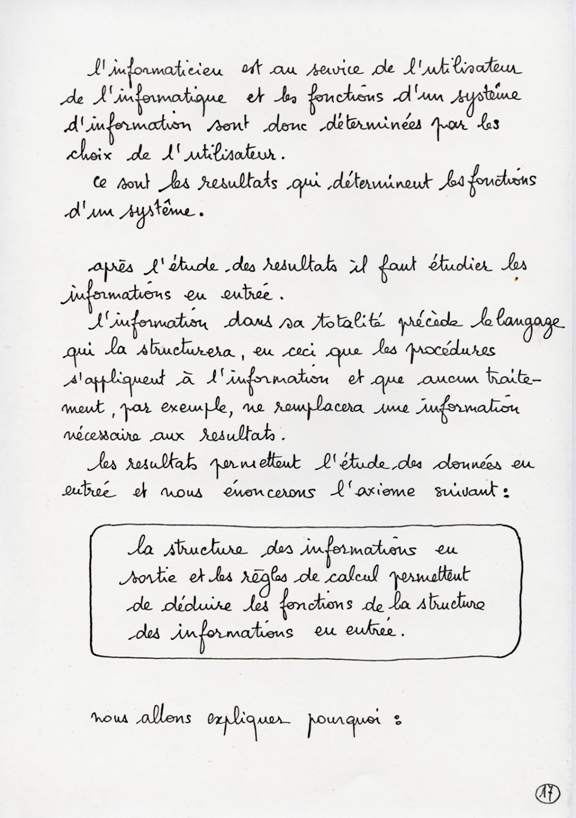 l'informaticien est au service de l'utilisateur
de l'informatique et les fonctions d'un système
d'information sont donc déterminées par les
choix de l'utilisateur.
ce sont les resultats qui déterminent les fonctions
d'un système.
après l'étude des resultats il faut étudier les
informations en entrée.
l'information dans sa totalité précède le langage
qui la structurera, en ceci que les procédures
s'appliquent à l'information et que aucun traite-
ment, par exemple, ne remplacera une information
nécessaire aux resultats.
les resultats permettent l'étude des données en
entrée et nous énoncerons l'axiome suivant :
la structure des informations en
sortie et les règles de calcul permettent
de déduire les fonctions de la structure
des informations en entrée.
nous allons expliquer pourquoi :
17